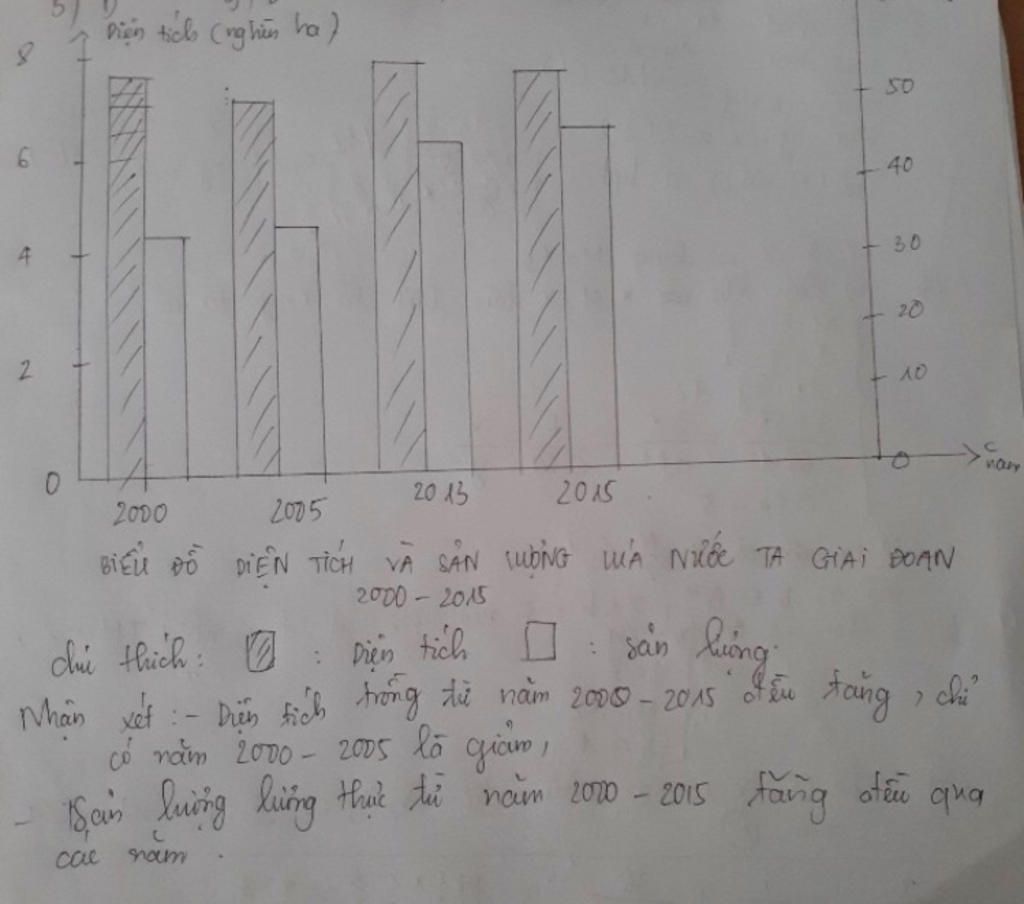 5)
Diện tích (nghìn ha)
8
6
4
2
0
50
40
30
20
10
0
năm
2000
2005
2013
2015
BIỂU ĐỒ DIỆN TÍCH VÀ SẢN LƯỢNG LÚA NƯỚC TA GIAI ĐOẠN
2000 - 2015
chú thích: : Diện tích : sản lượng.
Nhận xét: - Diện tích trồng từ năm 2000 - 2015 đều tăng, chỉ
có năm 2000 - 2005 là giảm,
- Sản lượng lương thực từ năm 2000 - 2015 tăng đều qua
các năm.